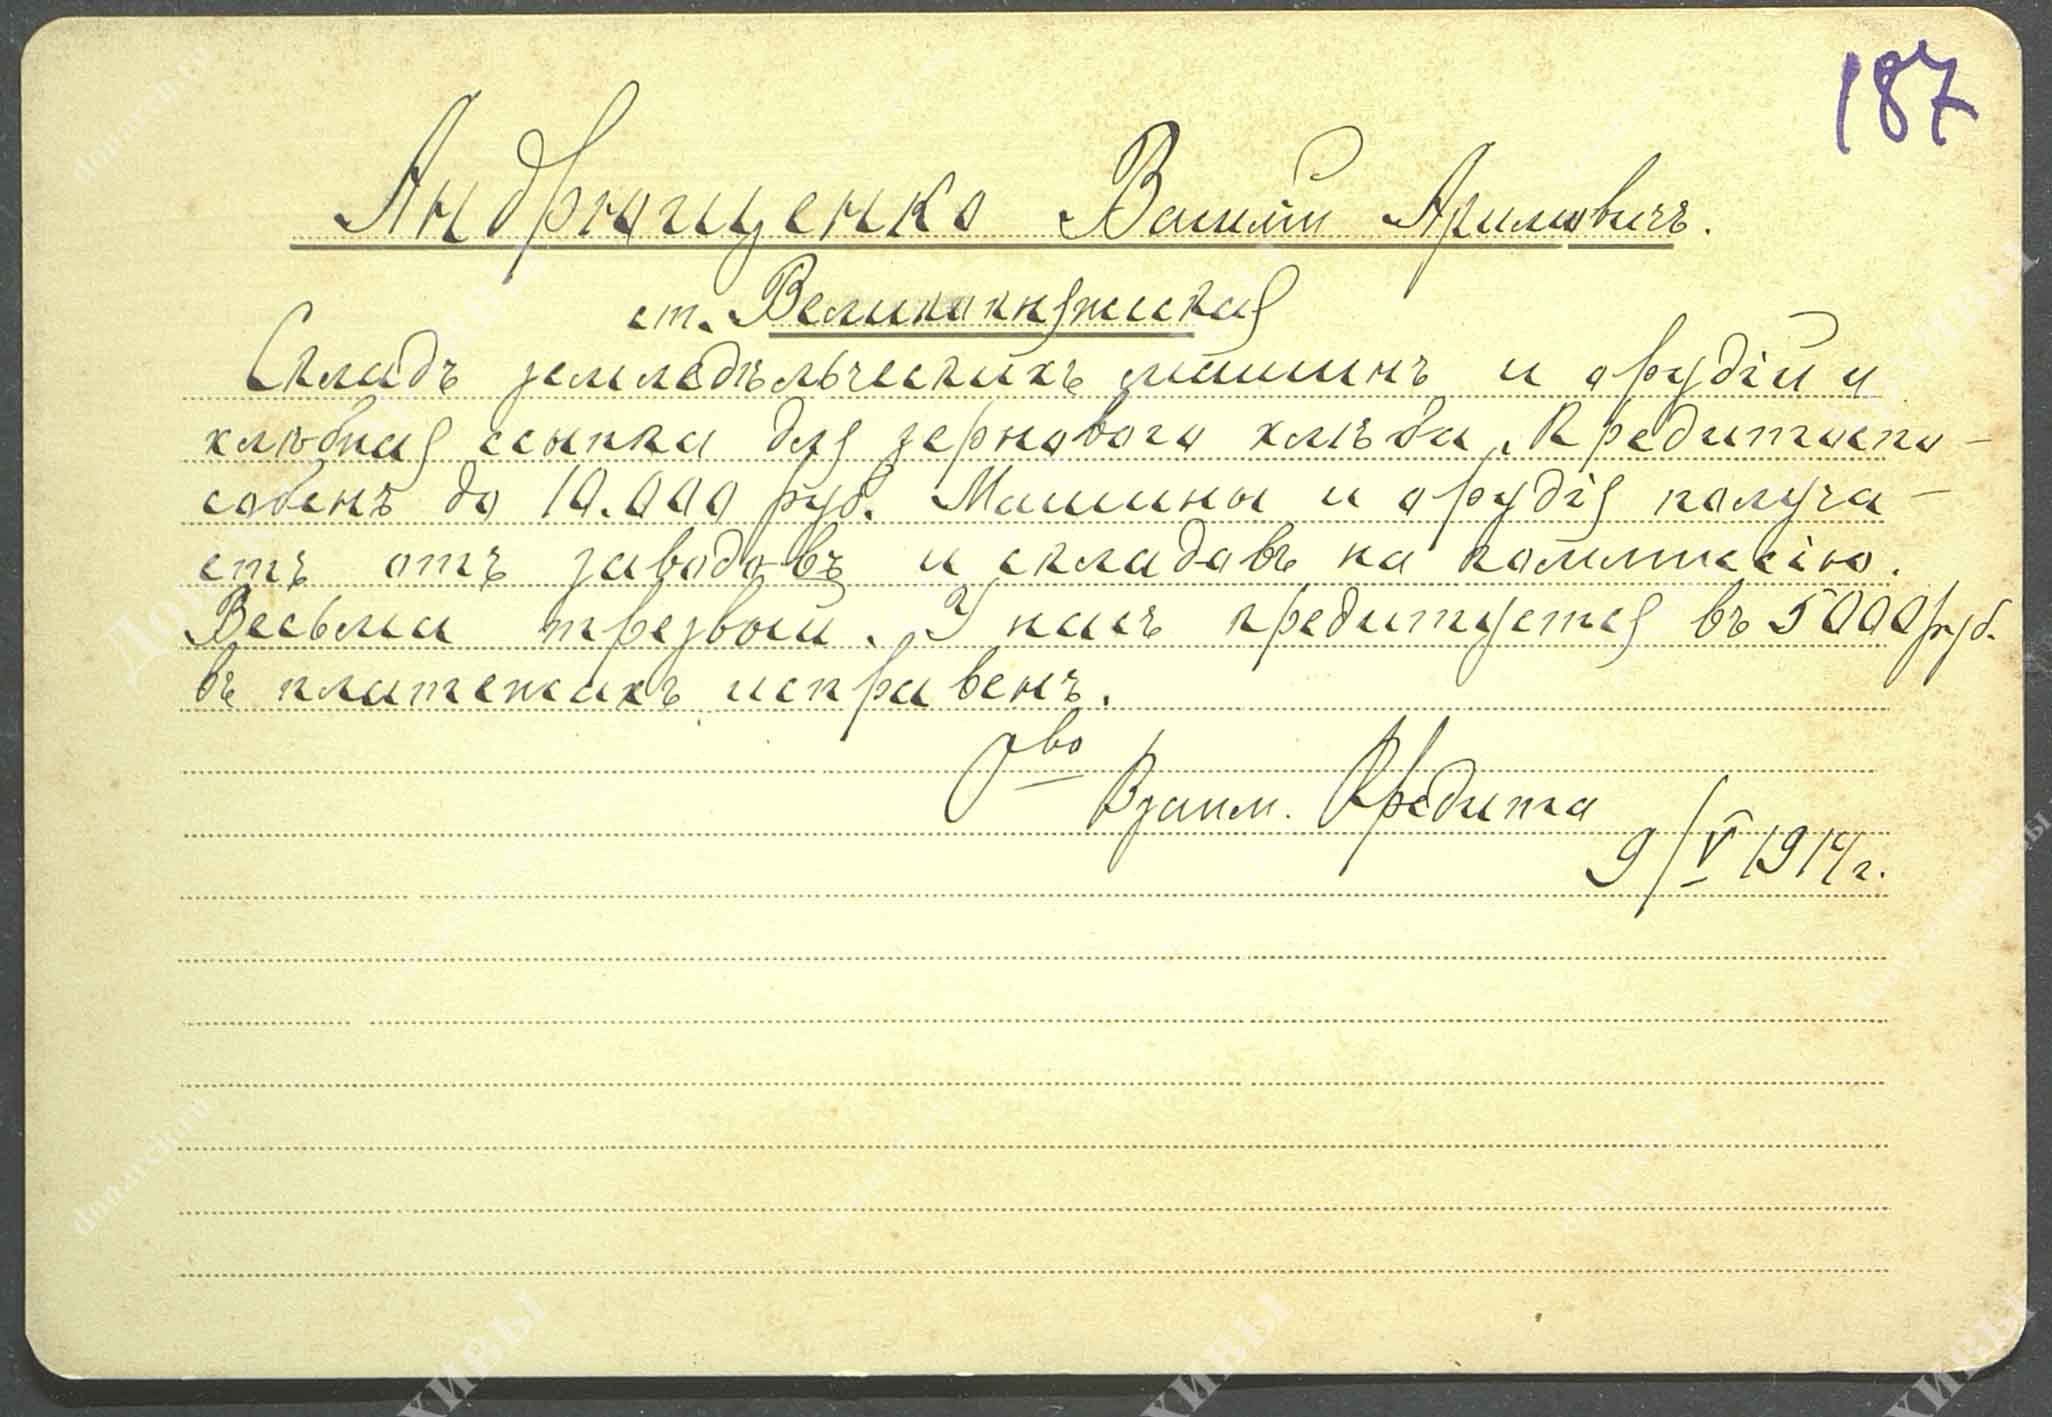 187
Андрющенко Василій
ст. Великокняжеская
Складъ земледѣльческихъ машинъ и орудій и
хлѣбная ссыпка для зернового хлѣба. Кредитоспо-
собенъ до 10.000 руб. Машины и орудія получа-
етъ отъ заводовъ и складовъ на коммиссію.
Весьма трезвый. У насъ кредитуется въ 5000 руб.
въ платежахъ исправенъ.
О-во
Взаим. Кредита
9/V 1914г.